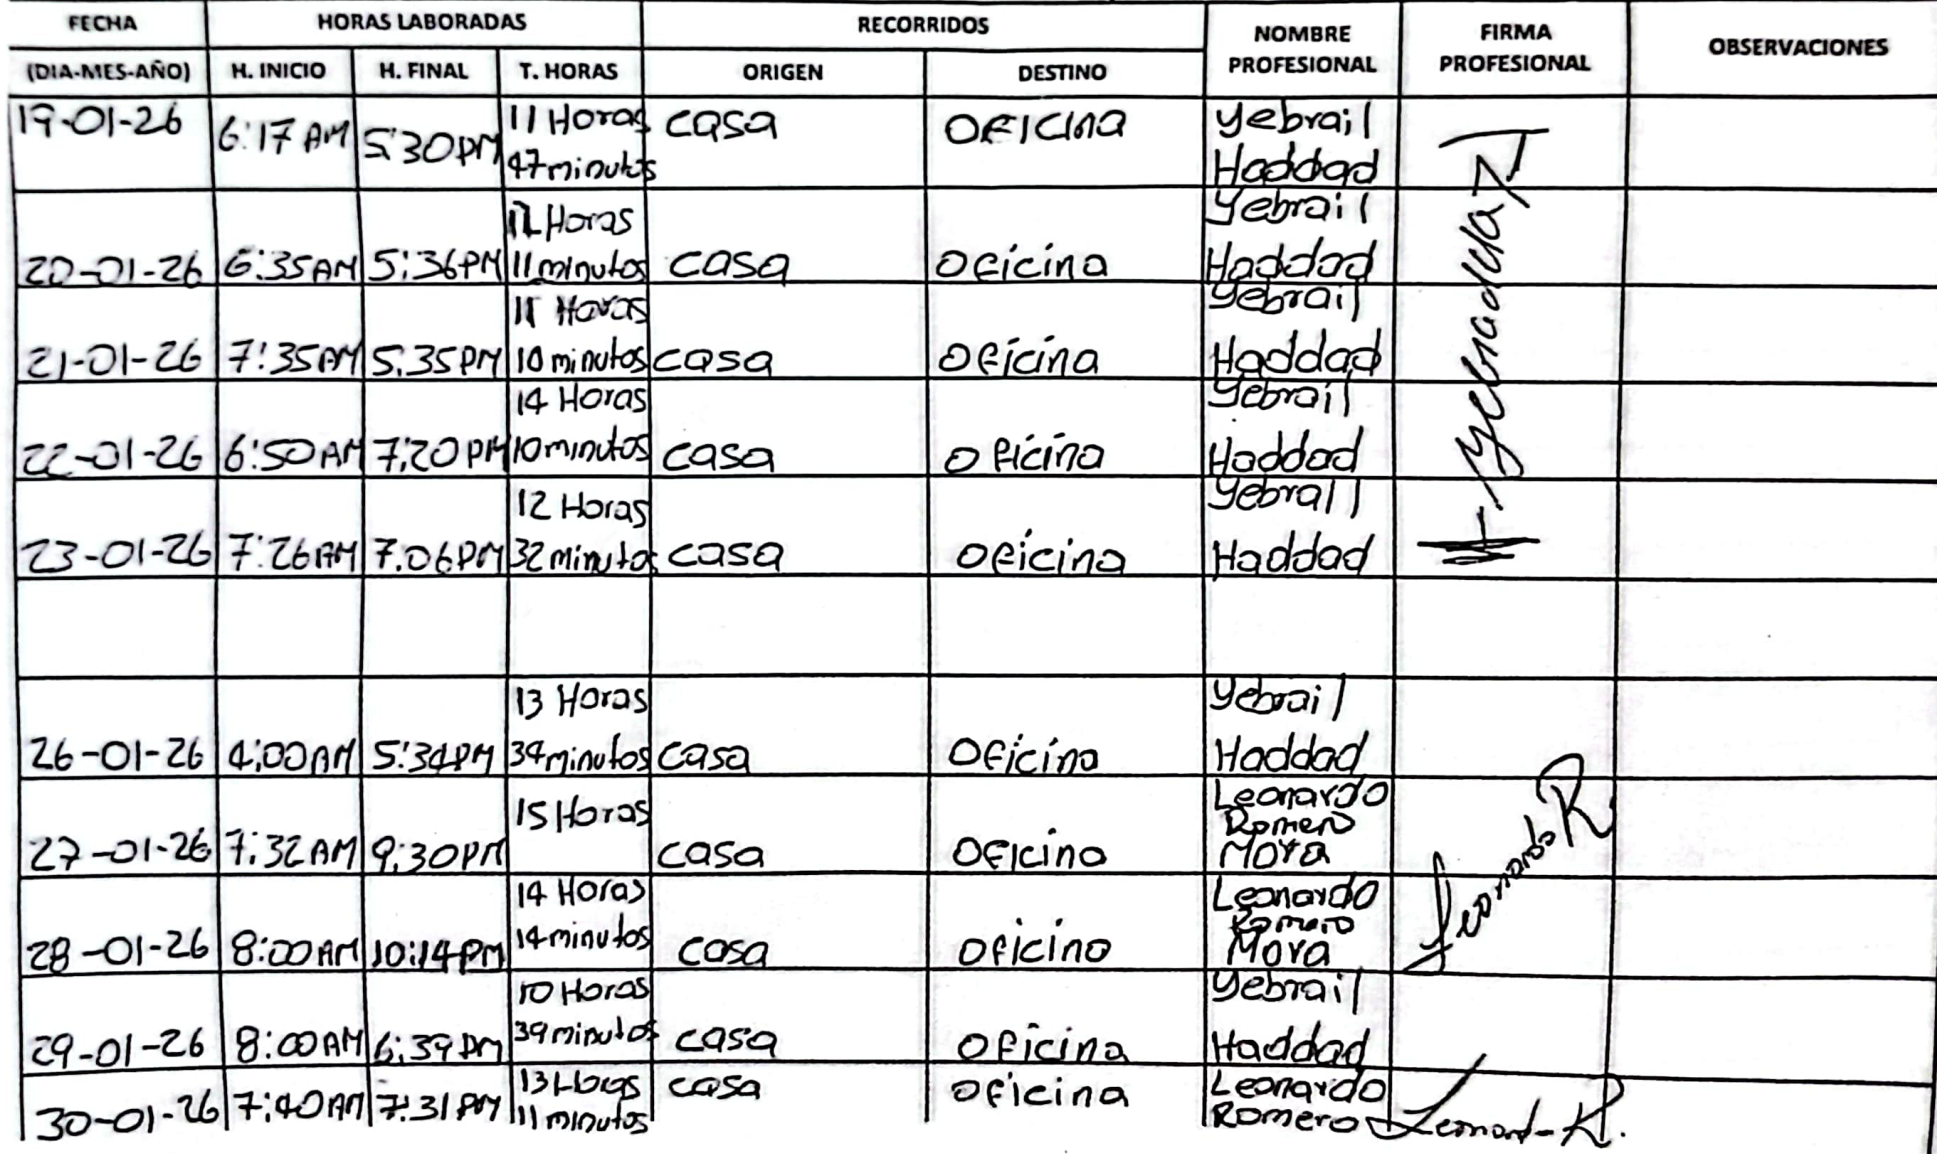 FECHA HORAS LABORADAS RECORRIDOS NOMBRE PROFESIONAL FIRMA PROFESIONAL OBSERVACIONES
(DIA-MES-AÑO) H. INICIO H. FINAL T. HORAS ORIGEN DESTINO
19-01-26 6:17 AM 5:30 PM 11 Horas 47 minutos casa OFICINA Yebrail Haddad
20-01-26 6:35 AM 5:36 PM Horas 11 minutos casa Oficina Yebrail Haddad
21-01-26 7:35 AM 5:35 PM 11 Horas 10 minutos casa Oficina Yebrail Haddad
22-01-26 6:50 AM 7:20 PM 14 Horas 10 minutos casa Oficina Yebrail Haddad
23-01-26 7:26 AM 7:06 PM 12 Horas 32 minutos casa Oficina Yebrail Haddad
26-01-26 4:00 AM 5:34 PM 13 Horas 34 minutos casa Oficina Yebrail Haddad
27-01-26 7:32 AM 9:30 PM 15 Horas casa Oficina Leonardo Romero Mora
28-01-26 8:00 AM 10:14 PM 14 Horas 14 minutos casa Oficina Leonardo Romero Mora Leonardo R.
29-01-26 8:00 AM 6:39 PM 10 Horas 39 minutos casa Oficina Yebrail Haddad
30-01-26 7:40 AM 7:31 PM 13 Horas 11 minutos casa Oficina Leonardo Romero Leonardo R.